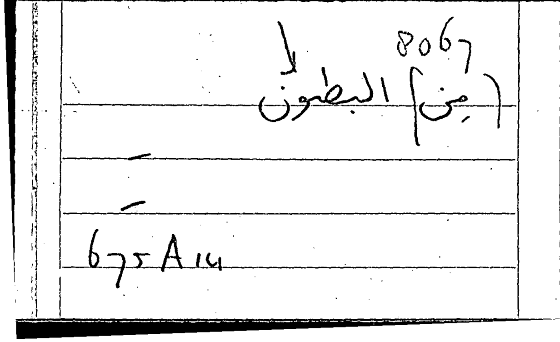 8067
(من) البطون
675 A 14